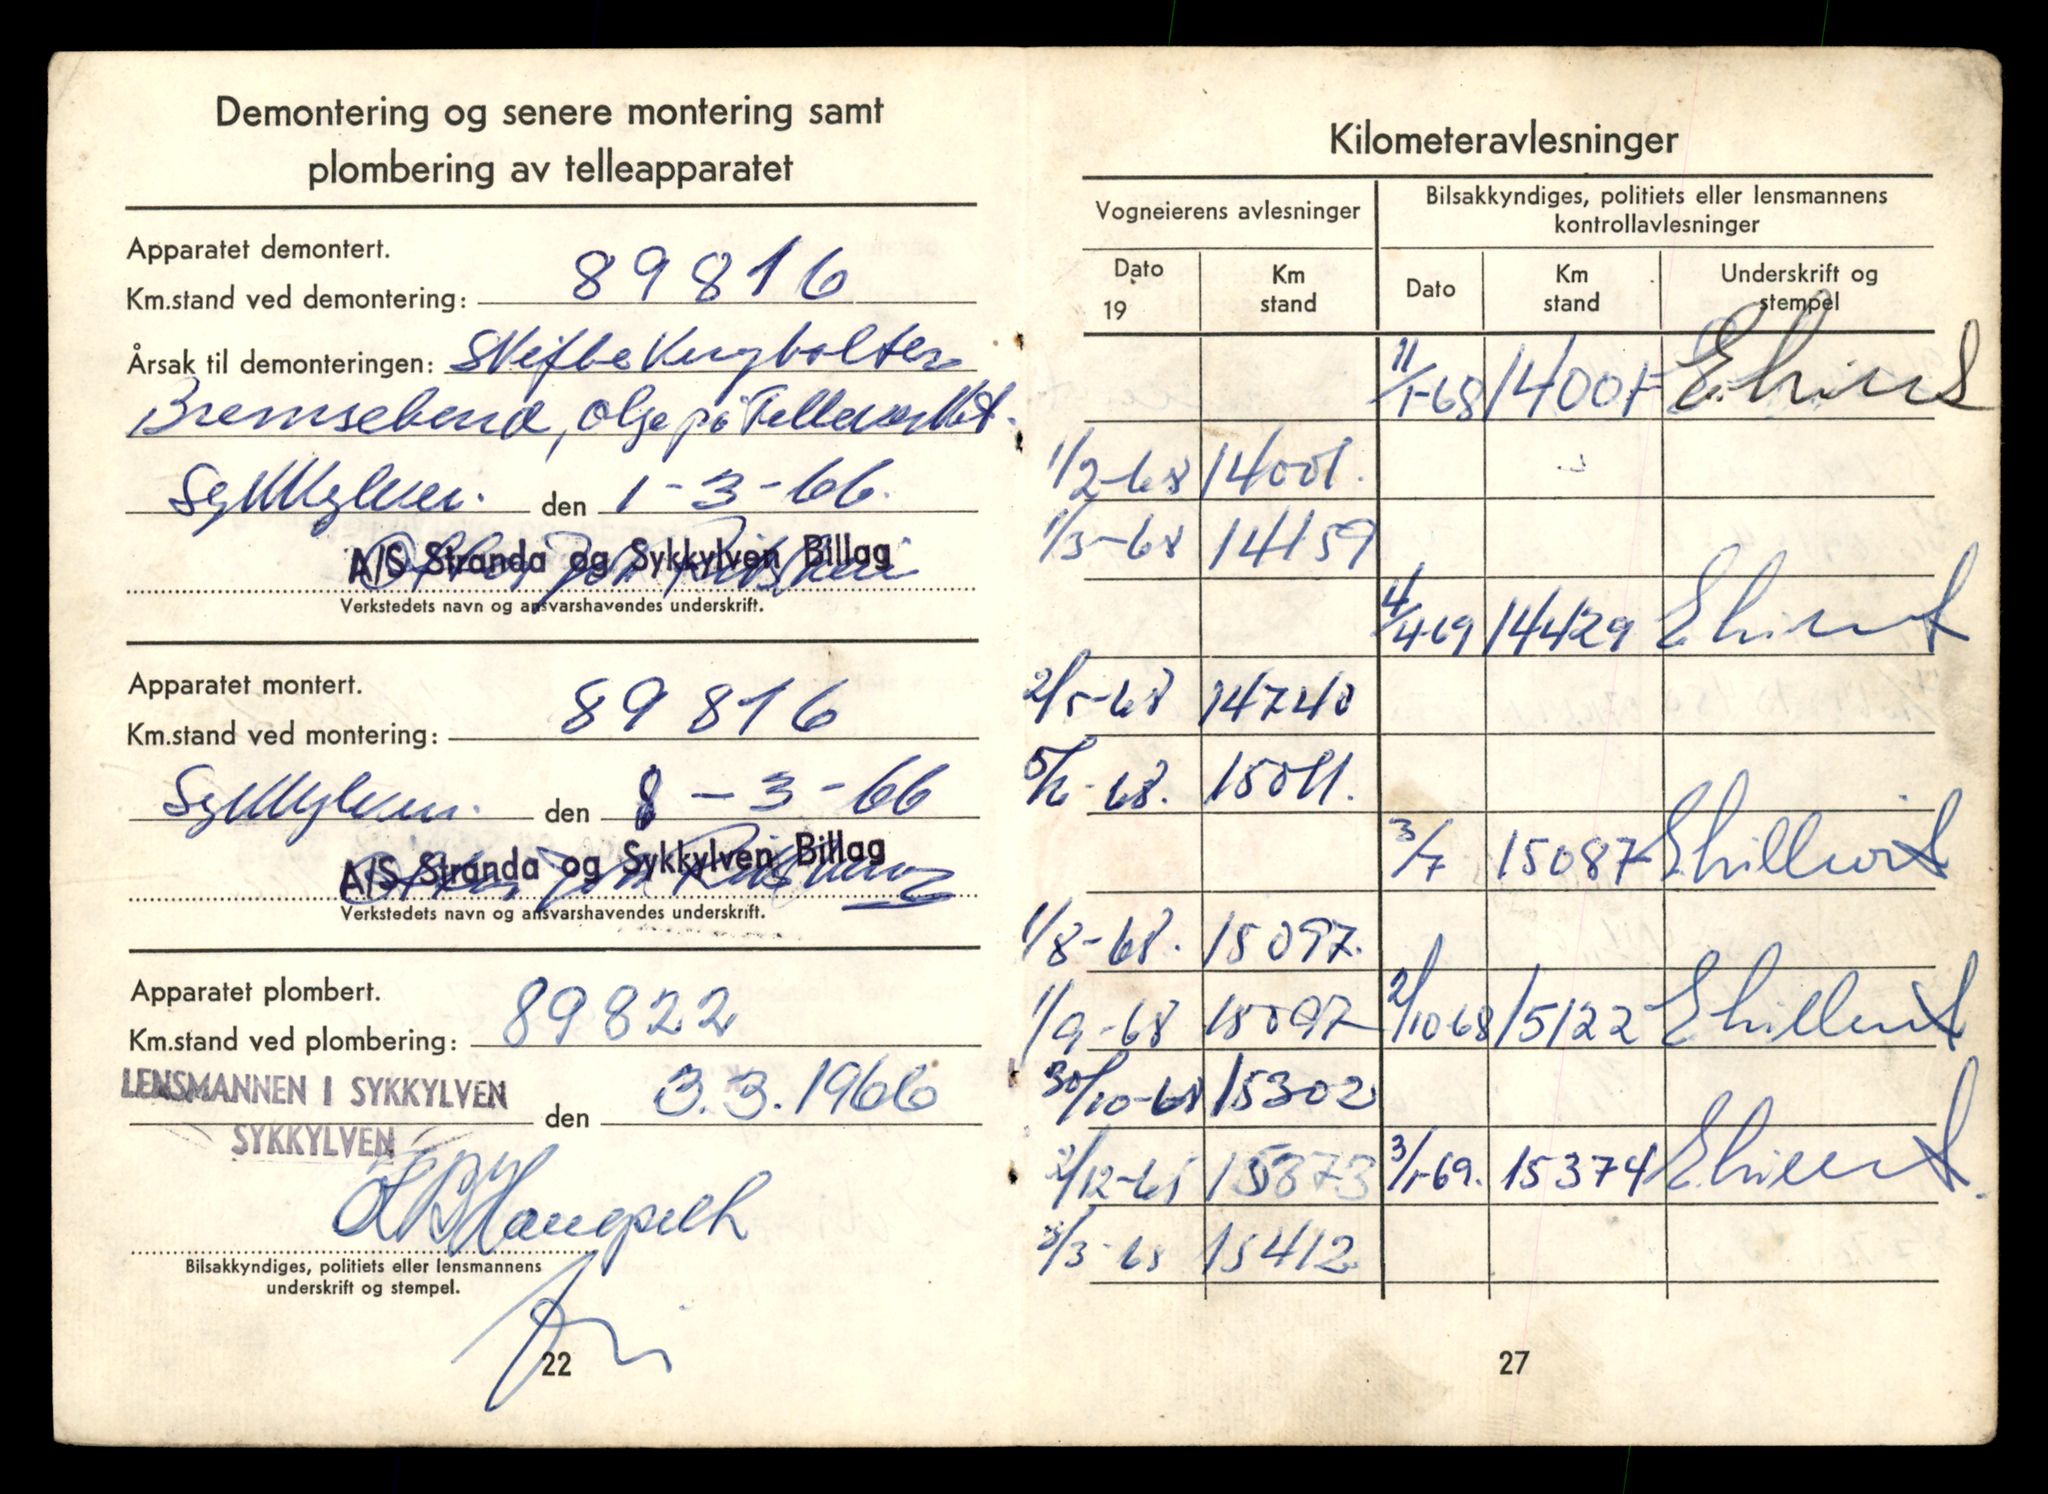 Demontering og senere montering samt
plombering av telleapparatet
Apparatet demontert.
Km.stand ved demontering: 89816
Årsak til demonteringen: Skifte Kingbolter
Bremsebend, olge på Telleverket.
Sykkylven. den 1-3-66.
A/S Stranda og Sykkylven Billag
Verkstedets navn og ansvarshavendes underskrift.
Apparatet montert.
Km.stand ved montering: 89816
Sykkylven. den 8-3-66
A/S Stranda og Sykkylven Billag
Verkstedets navn og ansvarshavendes underskrift.
Apparatet plombert.
Km.stand ved plombering: 89822
LENSMANNEN I SYKKYLVEN
den 3.3.1966
SYKKYLVEN
Bilsakkyndiges, politiets eller lensmannens
underskrift og stempel.
22
Kilometeravlesninger
Vogneierens avlesninger
Bilsakkyndiges, politiets eller lensmannens
kontrollavlesninger
Dato
19
Km
stand
Dato
Km
stand
Underskrift og
stempel
11/1-68 14001
1/2-68 14001.
1/3-68 14159
4/4-69 14429
2/5-68 14740
5/6-68. 15011.
3/7 15087
1/8-68. 15097.
1/9-68 15097 2/10-68 15122
30/10-68 15302
2/12-68 15373 3/1-69. 15374
3/3-68 15412
27